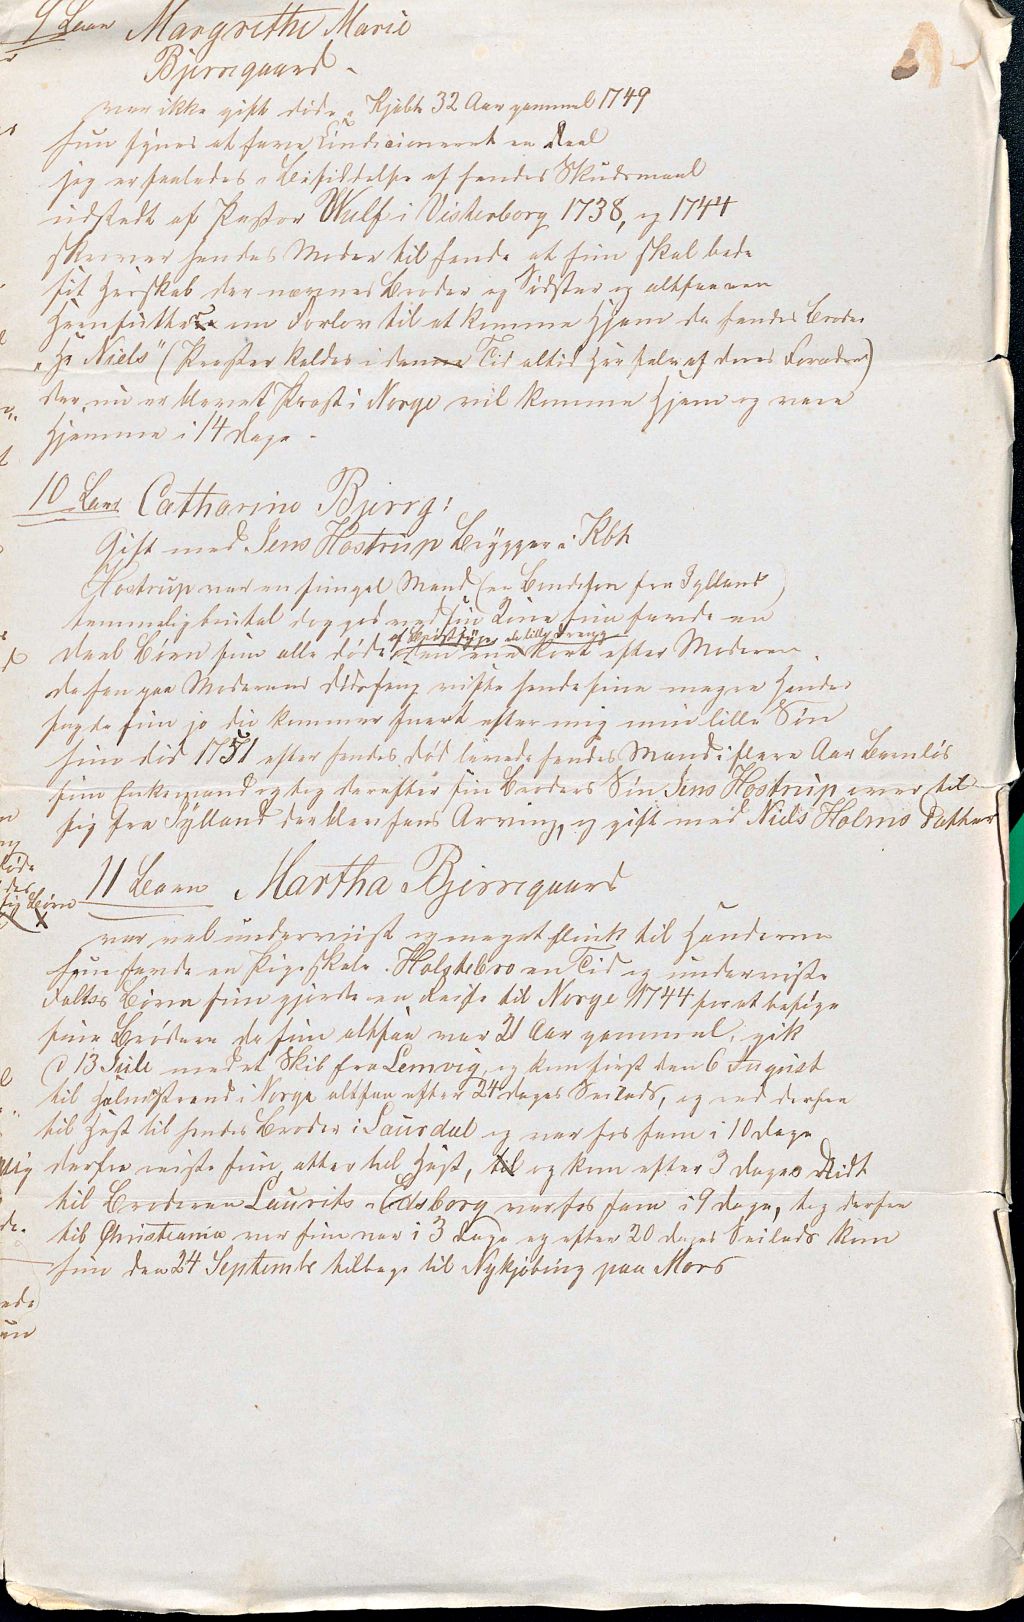 9 Barn Margrethe Marie
Bjerregaard
var ikke gift døde i Kjøbh 32 Aar gammel 1749
hun synes at have Kondicioneret en deel
jeg er saaledes i Besiddelse af hendes Skudsmaal
udstedt af Pastor Wulf i Visterborg 1738, og 1744
skriver hendes Moder til hende at hun skal bede
sit Herskab der nævnes Broder og Södster og altsaa
om Forlov til at komme Hjem da hendes Broder
"Hr Niels" (Præster kaldes i denne Tid altid Hr selv af deres Forældre)
der nu er blevet Præst i Norge vil komme Hjem og være
Hjemme i 14 dage -
10 Barn Catharine Bjerrg:
Gift med Jens Hostrup Brÿgger i Kbh
Hostrup var en simpel Mand (en Bondesøn fra Jylland)
temmelig brutal dog god ved sin Kone hun havde en
af de lille Dreng
deel Børn som alle døde den ene kort efter Moderen
da han paa Moderens Dødsseng viste hende sine magre Hænder
sagde hun jo du kommer snart efter mig min lille Søn
hun död 1751 efter hendes Död levede hendes Mand i flere Aar Barnlös
som Enkemand og tog derefter sin Broders Sön Jens Hostrup over til
sig fra Jylland der blev hans Arving, og gift med Niels Holms Datter
11 Barn Martha Bjerregaard
var vel underviist og meget flink til Haanden
hun havde en Pigeskole i Holstebro en Tid og underviste
Folks Børn hun gjorde en Reise til Norge 1744 for at besøge
sine Brödre da hun altsaa var 21 Aar gammel, gik
d 13 Juli med et Skib fra Lemvig, og kom först den 6 August
til Holmestrand i Norge altsaa efter 24 dages Seilads, og red derfra
til Hest til hendes Broder i Saurdal og var hos ham i 10 dage
derfra reiste hun atter til Hest, til og kom efter 3 dages Ridt
til Broderen Laurits i Edsborg var hos ham i 9 dage, tog derfra
til Christiania hvor hun var i 3 dage og efter 20 dages Seilads kom
hun den 24 Septembr tilbage til Nykjøbing paa Mors